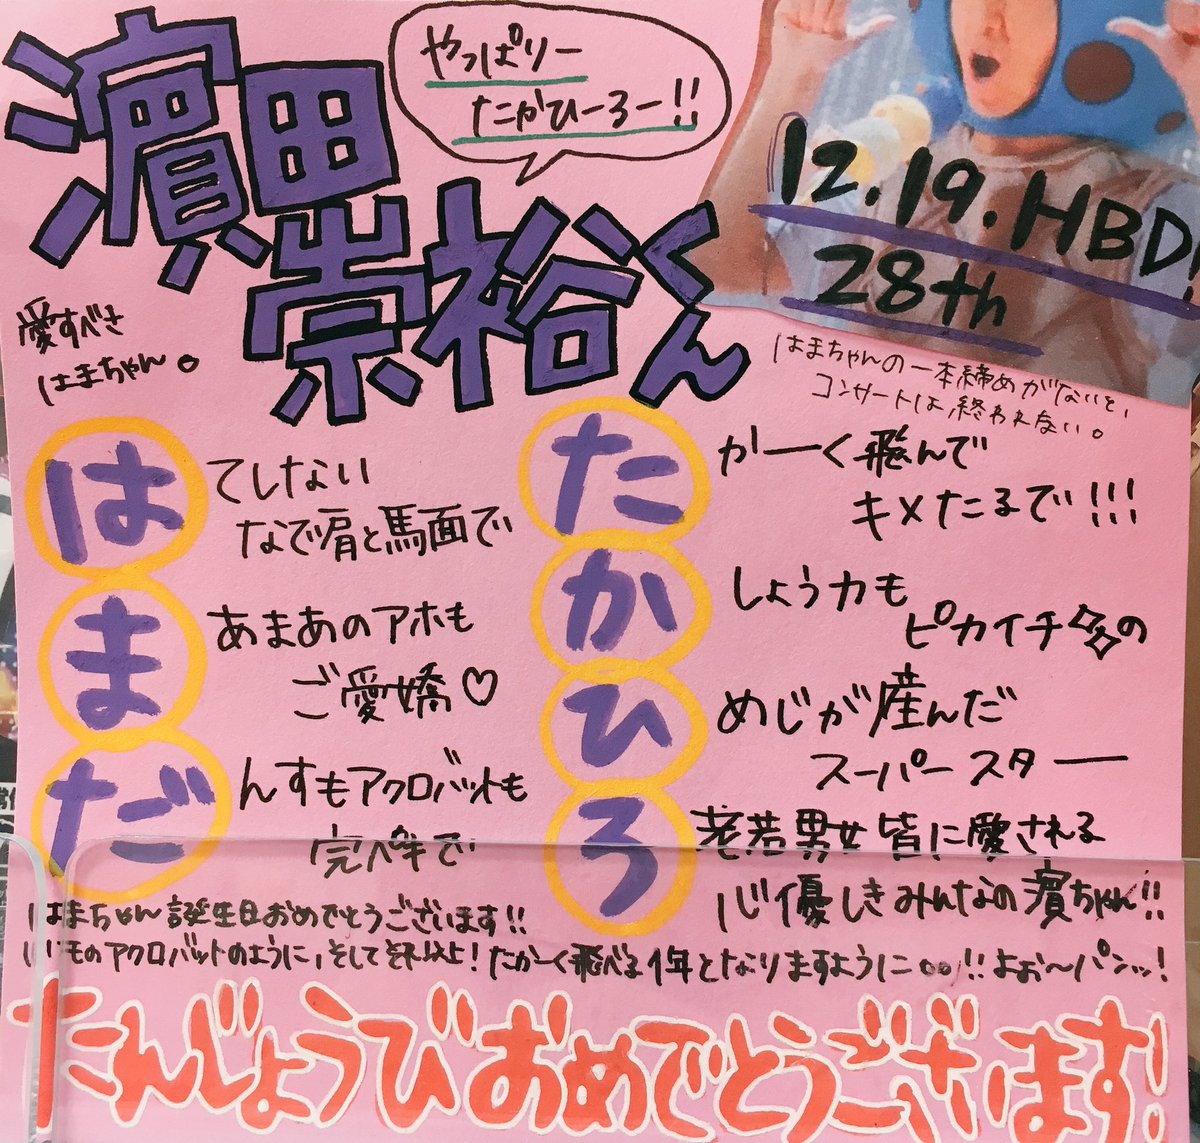 濵田
崇裕くん
やっぱりー
たかひーろー!!
12.19.HBD!
28th
愛すべき
はまちゃん。
はまちゃんの一本締めがないと、
コンサートは終われない。
はてしない
なで肩と馬面で
まあまあのアホも
ご愛嬌♡
だんすもアクロバットも
完ペキで
たかーく飛んで
キメたるで!!!
かしょう力も
ピカイチの
ひめじが産んだ
スーパースター
ろ老若男女皆に愛される
心優しきみんなの濵ちゃん!!
はまちゃん誕生日おめでとうございます!!
いつものアクロバットのように、そしてそれ以上!たかーく飛べる1年となりますように∞!!よぉ〜パンッ!
たんじょうびおめでとうございます!